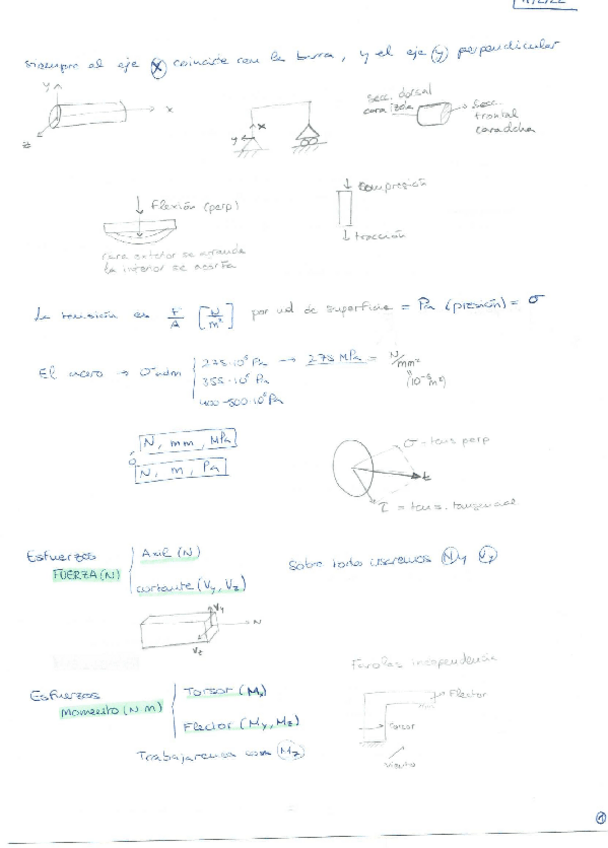 siempre el eje (x) coincide con la barra, y el eje (y) perpendicular
y
x
z
y
x
secc. dorsal
cara izda
secc.
frontal
cara dcha
Flexión (perp)
compresión
tracción
cara exterior se agranda
la interior se acorta
La tensión es F/A [N/m²] por ud de superficie = Pa (presión) = σ
El acero → σ adm
275·10⁶ Pa → 275 MPa = N/mm²
355·10⁶ Pa
400-500·10⁶ Pa
N, mm, MPa
o
N, m, Pa
σ - tens perp
t
τ = tens. tangencial
Esfuerzos
FUERZA (N)
Axil (N)
cortante (Vy, Vz)
Sobre todo usaremos (N) y (Vy)
Vy
N
Vz
Farolas independencia
Esfuerzos
Momento (N m)
Torsor (Mx)
Flector (My, Mz)
Flector
Torsor
Viento
Trabajaremos con (Mz)
1